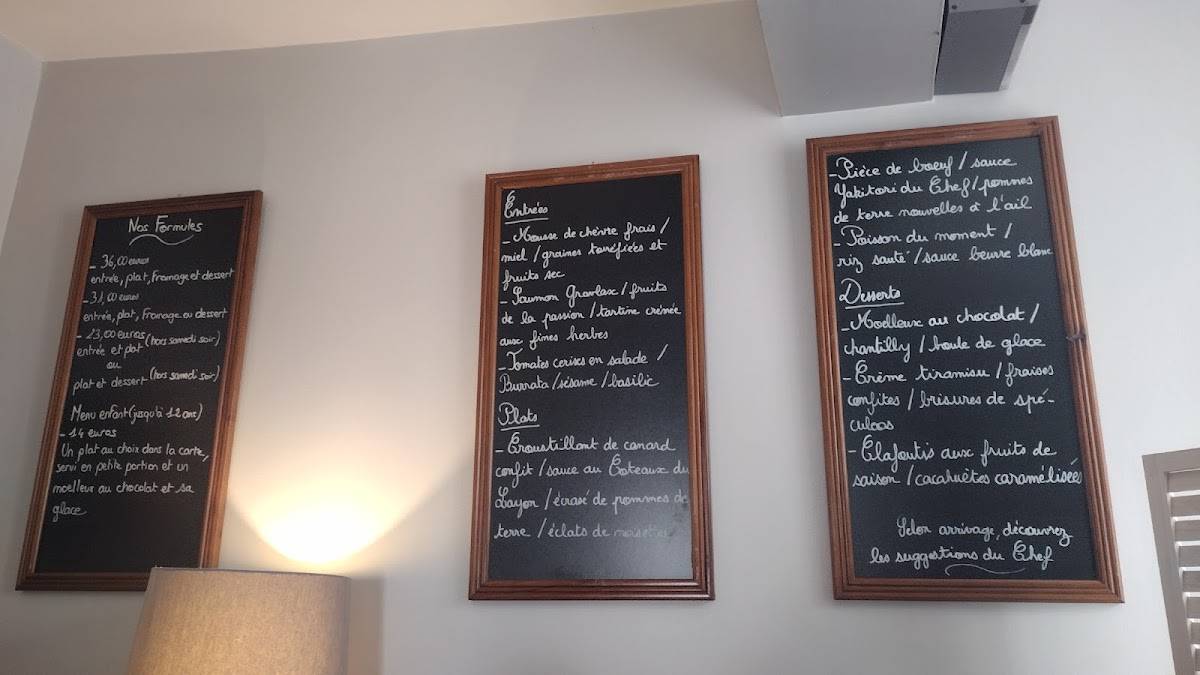 Nos Formules
- 36,00 euros
entrée, plat, fromage et dessert
- 31,00 euros
entrée, plat, fromage ou dessert
- 23,00 euros (hors samedi soir)
entrée et plat
ou
plat et dessert (hors samedi soir)
Menu enfant (jusqu'à 12 ans)
- 14 euros
Un plat au choix dans la carte,
servi en petite portion et un
moelleux au chocolat et sa
glace
Entrées
- Mousse de chèvre frais /
miel / graines torréfiées et
fruits sec
- Saumon Gravlax / fruits
de la passion / tartine crémée
aux fines herbes
- Tomates cerises en salade /
Burrata / sésame / basilic
Plats
- Croustillant de canard
confit / sauce au Coteaux du
Layon / écrasé de pommes de
terre / éclats de noisettes
- Pièce de boeuf / sauce
Yakitori du Chef / pommes
de terre nouvelles à l'ail
- Poisson du moment /
riz sauté / sauce beurre blanc
Desserts
- Moelleux au chocolat /
chantilly / boule de glace
- Crème tiramisu / fraises
confites / brisures de spé-
culoos
- Clafoutis aux fruits de
saison / cacahuètes caramélisées
Selon arrivage, découvrez
les suggestions du Chef